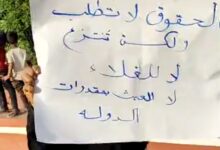 الحقوق لا تطلب
ولكن تنتزع
لا للغلاء
لا للعبث بمقدرات
الدولة